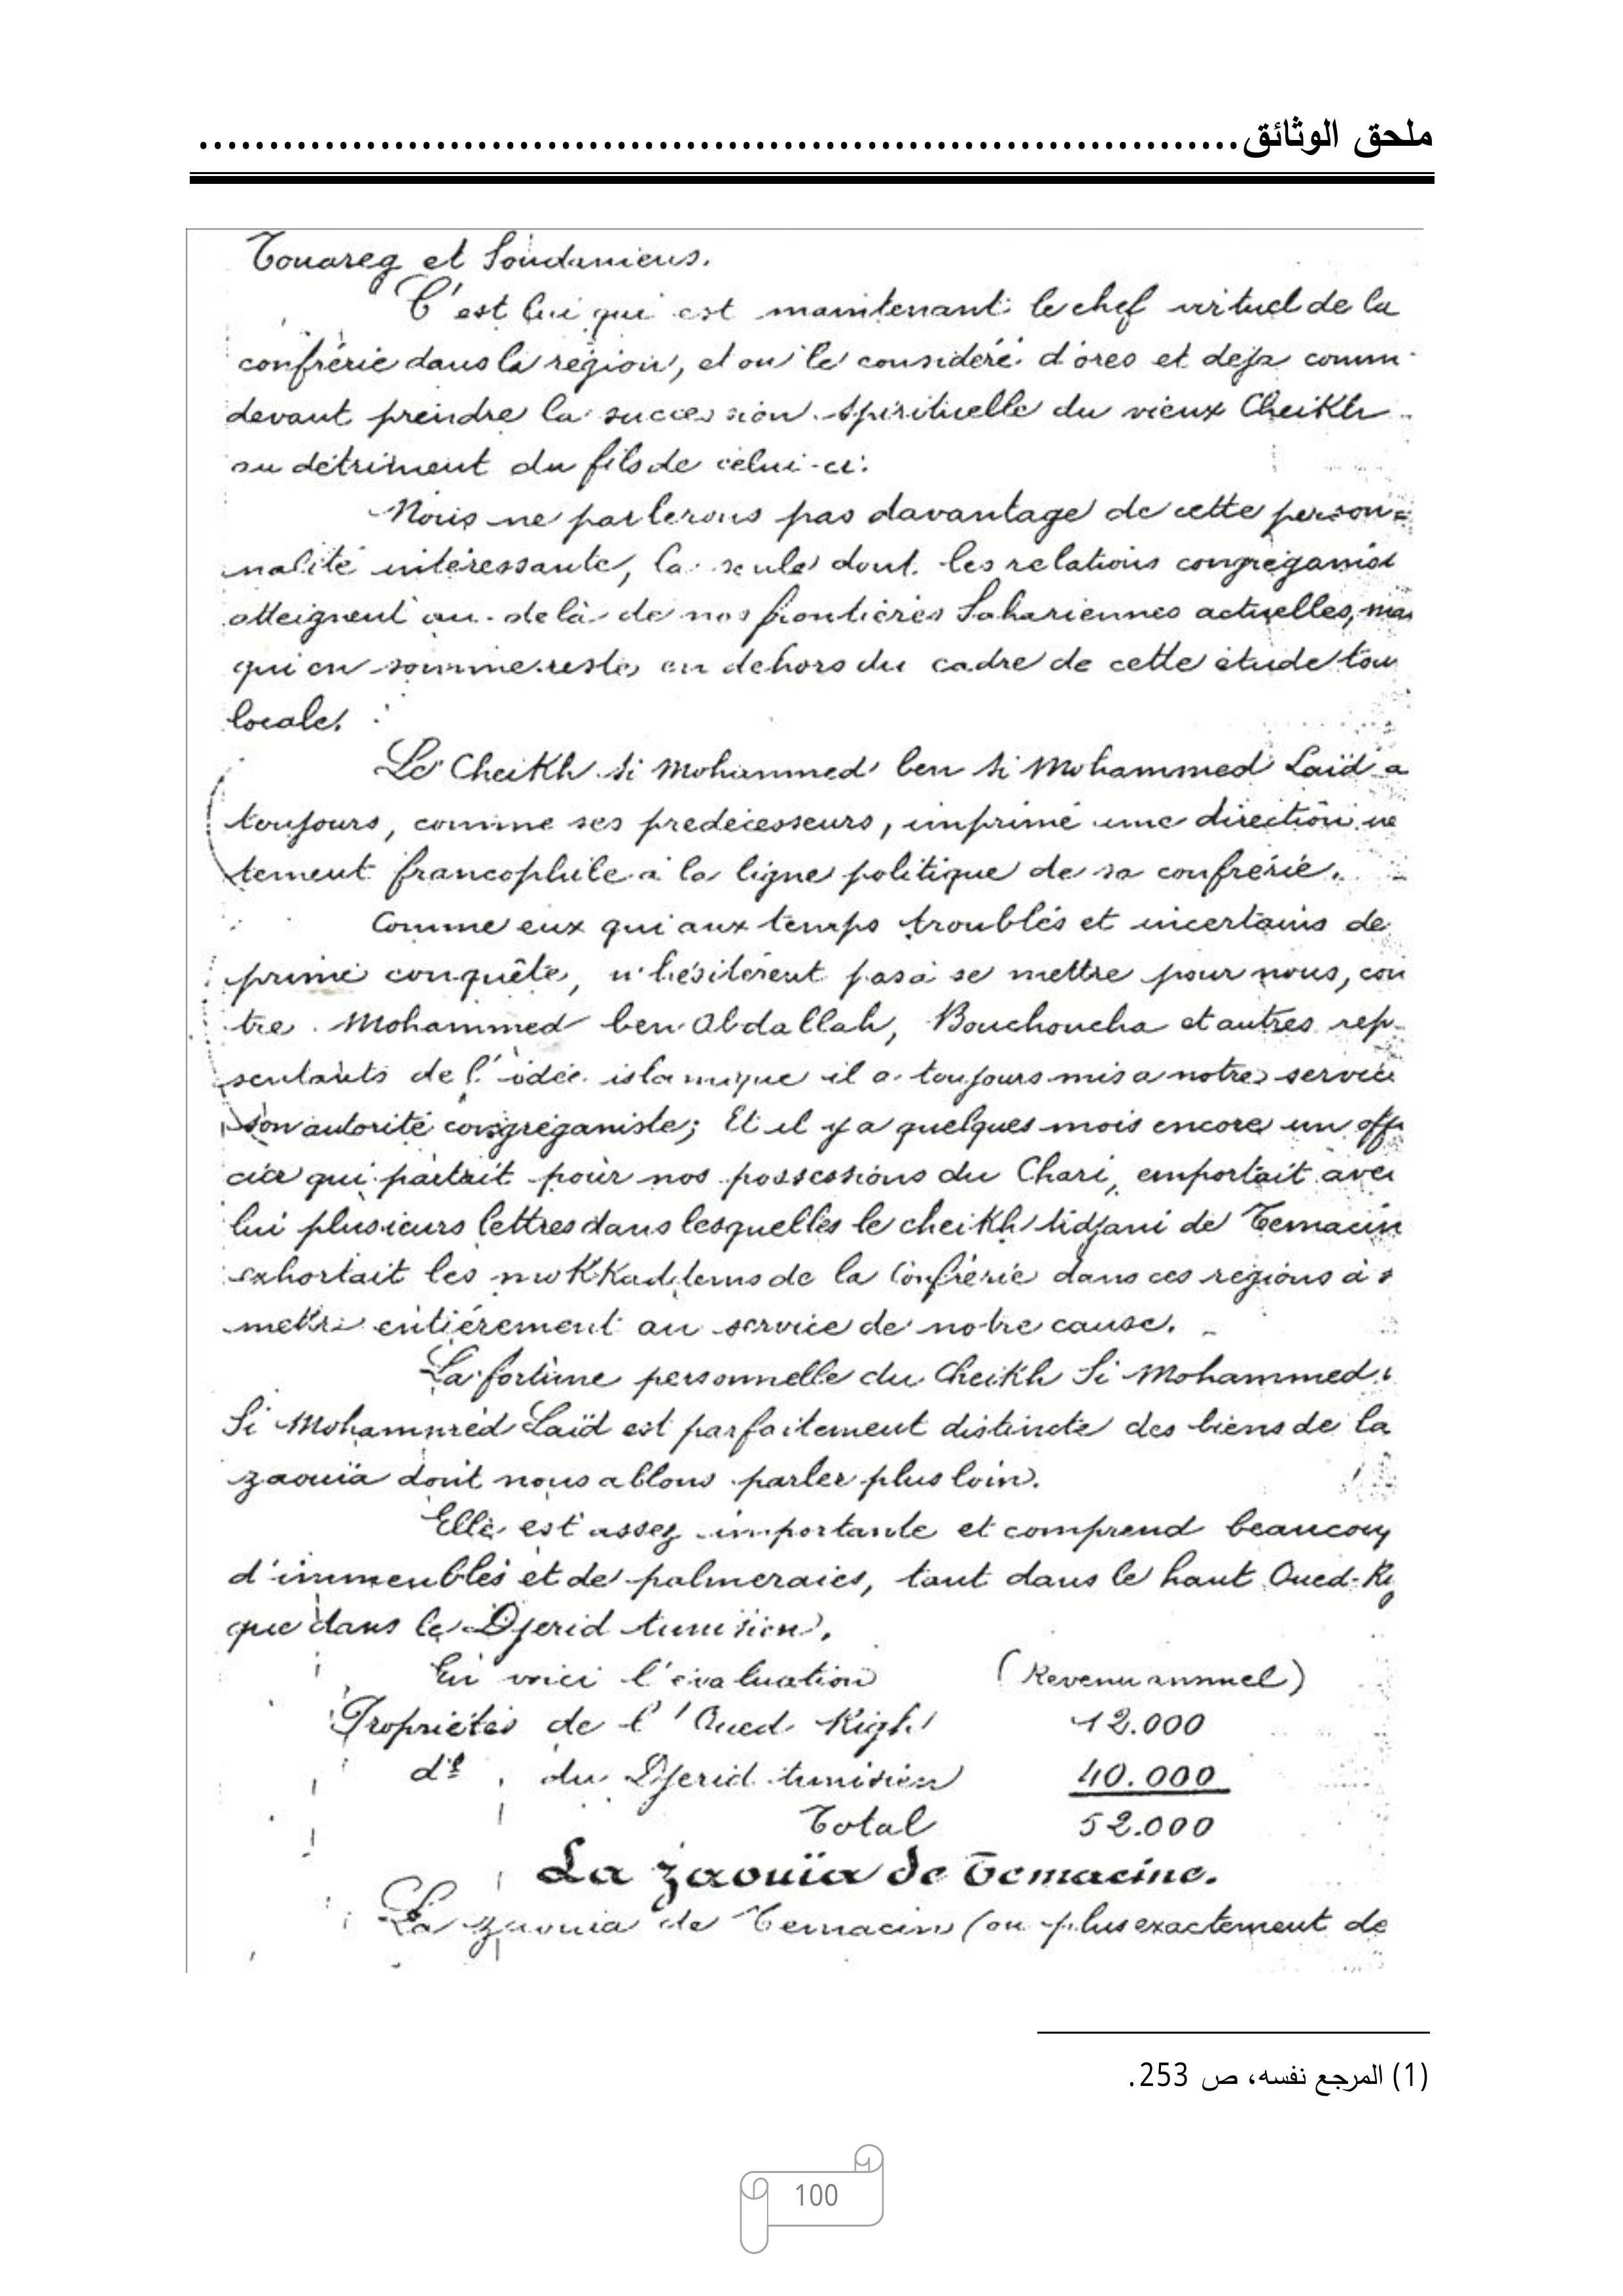 ملحق الوثائق...........................................................................
Touareg et Soudaniens.
C'est lui qui est maintenant le chef virtuel de la
confrérie dans la région, et on le considère d'ores et déjà comm
devant prendre la succession spirituelle du vieux Cheikh
au détriment du fils de celui-ci.
Nous ne parlerons pas davantage de cette person=
nalité intéressante, la seule dont les relations congréganist
atteignent au-delà de nos frontières Sahariennes actuelles, mai
qui en somme reste en dehors du cadre de cette étude tou
locale.
Le Cheikh Si Mohammed ben Si Mohammed Laïd a
toujours, comme ses prédécesseurs, imprimé une direction ne
tement francophile à la ligne politique de sa confrérie.
Comme eux qui aux temps troublés et incertains de
prime conquête, n'hésitèrent pas à se mettre pour nous, con
tre Mohammed ben Abdallah, Bouchoucha et autres rep-
sentants de l'idée islamique il a toujours mis a notre service
son autorité congréganiste; Et il y a quelques mois encore un offi
cier qui partait pour nos possessions du Chari, emportait avec
lui plusieurs lettres dans lesquelles le cheikh tidjani de Temacin
exhortait les mokkaddems de la Confrérie dans ces régions à s
mettre entièrement au service de notre cause. -
La fortune personnelle du Cheikh Si Mohammed
Si Mohammed Laïd est parfaitement distincte des biens de la
zaouïa dont nous allons parler plus loin.
Elle est assez importante et comprend beaucoup
d'immeubles et de palmeraies, tant dans le haut Oued-Rig
que dans le Djerid tunisien.
En voici l'évaluation (Revenu annuel)
Propriétés de l'Oued Righ 12.000
dº du Djerid tunisien 40.000
Total 52.000
La zaouïa de Temacine.
La zaouia de Temacin (ou plus exactement de
(1) المرجع نفسه، ص 253.
100